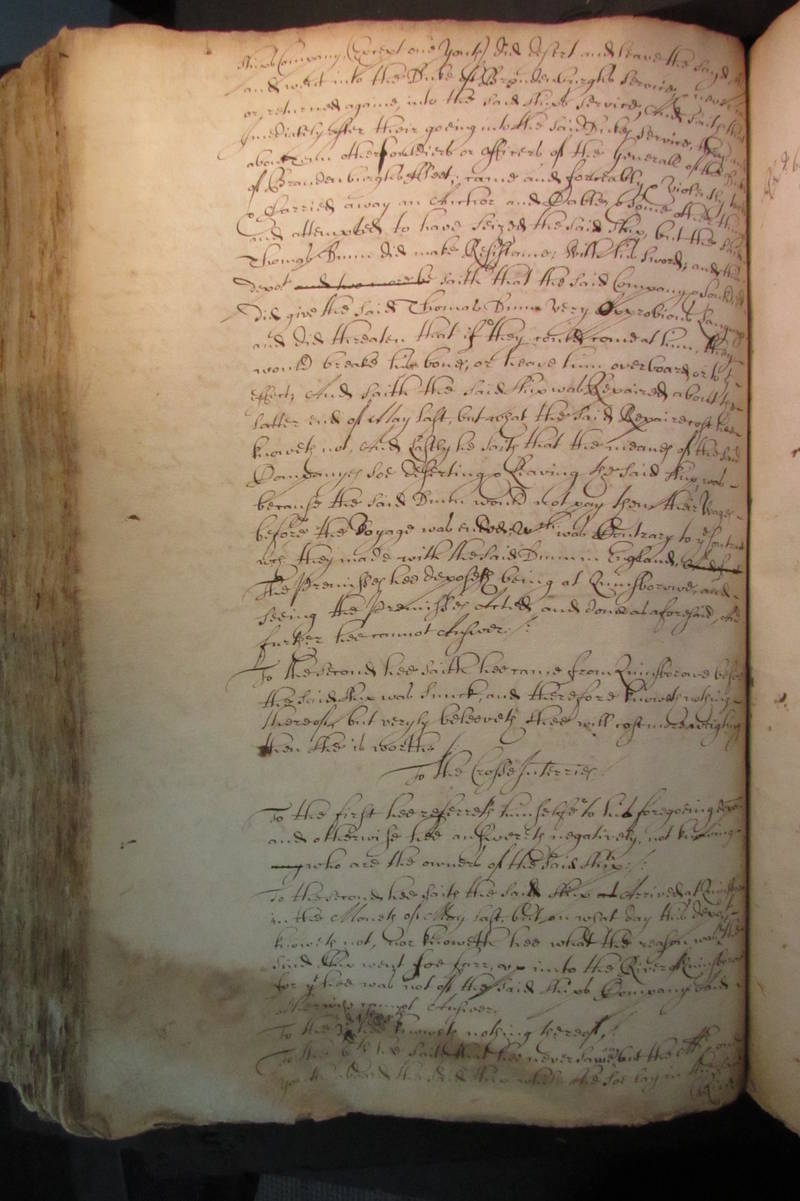 shipps Company (Except one Youth) did desert and leave the sayd
and went into the Duke of Brandenburghs Service, never
or returned againe, into the said shipps service, And saith that
Imediately after their goeing into the said Dukes service, they
about Tenn other souldiers or officers of the Generall of the
of Brandenburghs Fleet; came and forceably & violently
& Carried away an Anchor and Cable & some other things
and attempted to have seized the said shipp, but the said
Thomas Bunn did make Resistance, with his sword; and this
depot saith that the said Company & souldiers
did give the said Thomas Bunn very Opprobious Language
and did threaten that if they could come at him, they
would breake his bones, or heave him overboard or to
effect; And saith the said shipp was Repaired about the
latter end of May last, but what the said Repaire cost hee
knoweth not, And Lastly he saith that the meanes of the said
Companyes soe deserting & Leaving the said shipp, was
because the said Bunn would not pay them their Wages
before the Voyage was ended, wch was Contrary to ye Contract
wch they made with the said Bunn in England,
The Premisses hee deposeth being at Quinsborowe, and
seeing the Premisses Acted, and done as aforesaid, And
further hee cannot Answer./:
To the second hee saith hee came from Quinsborowe before
the said shipp was sunck, and therefore knoweth nothing
thereof, but veryly beleeveth shee will cost more weighing
then she is worth./
To the Crosse Interries
To the first hee referreth himselfe to his foregoeing depon
and otherwise hee answereth negatively, not knowing
who are the owners of the said shipp./:
To the second hee saith the said shipp Arrived at Quinsborowe
in the Moneth of May last, but on what day this depot
knoweth not, nor knoweth hee what the reason was the
said shipp went soe farr, up into the River of Quinsborowe
for yt hee was not of the said shipps Company and
otherwise cannot Answer.
To the hee knoweth nothing thereof./:
To the hee saith that hee never saw any but the
the said shipp whilst she soe lay in